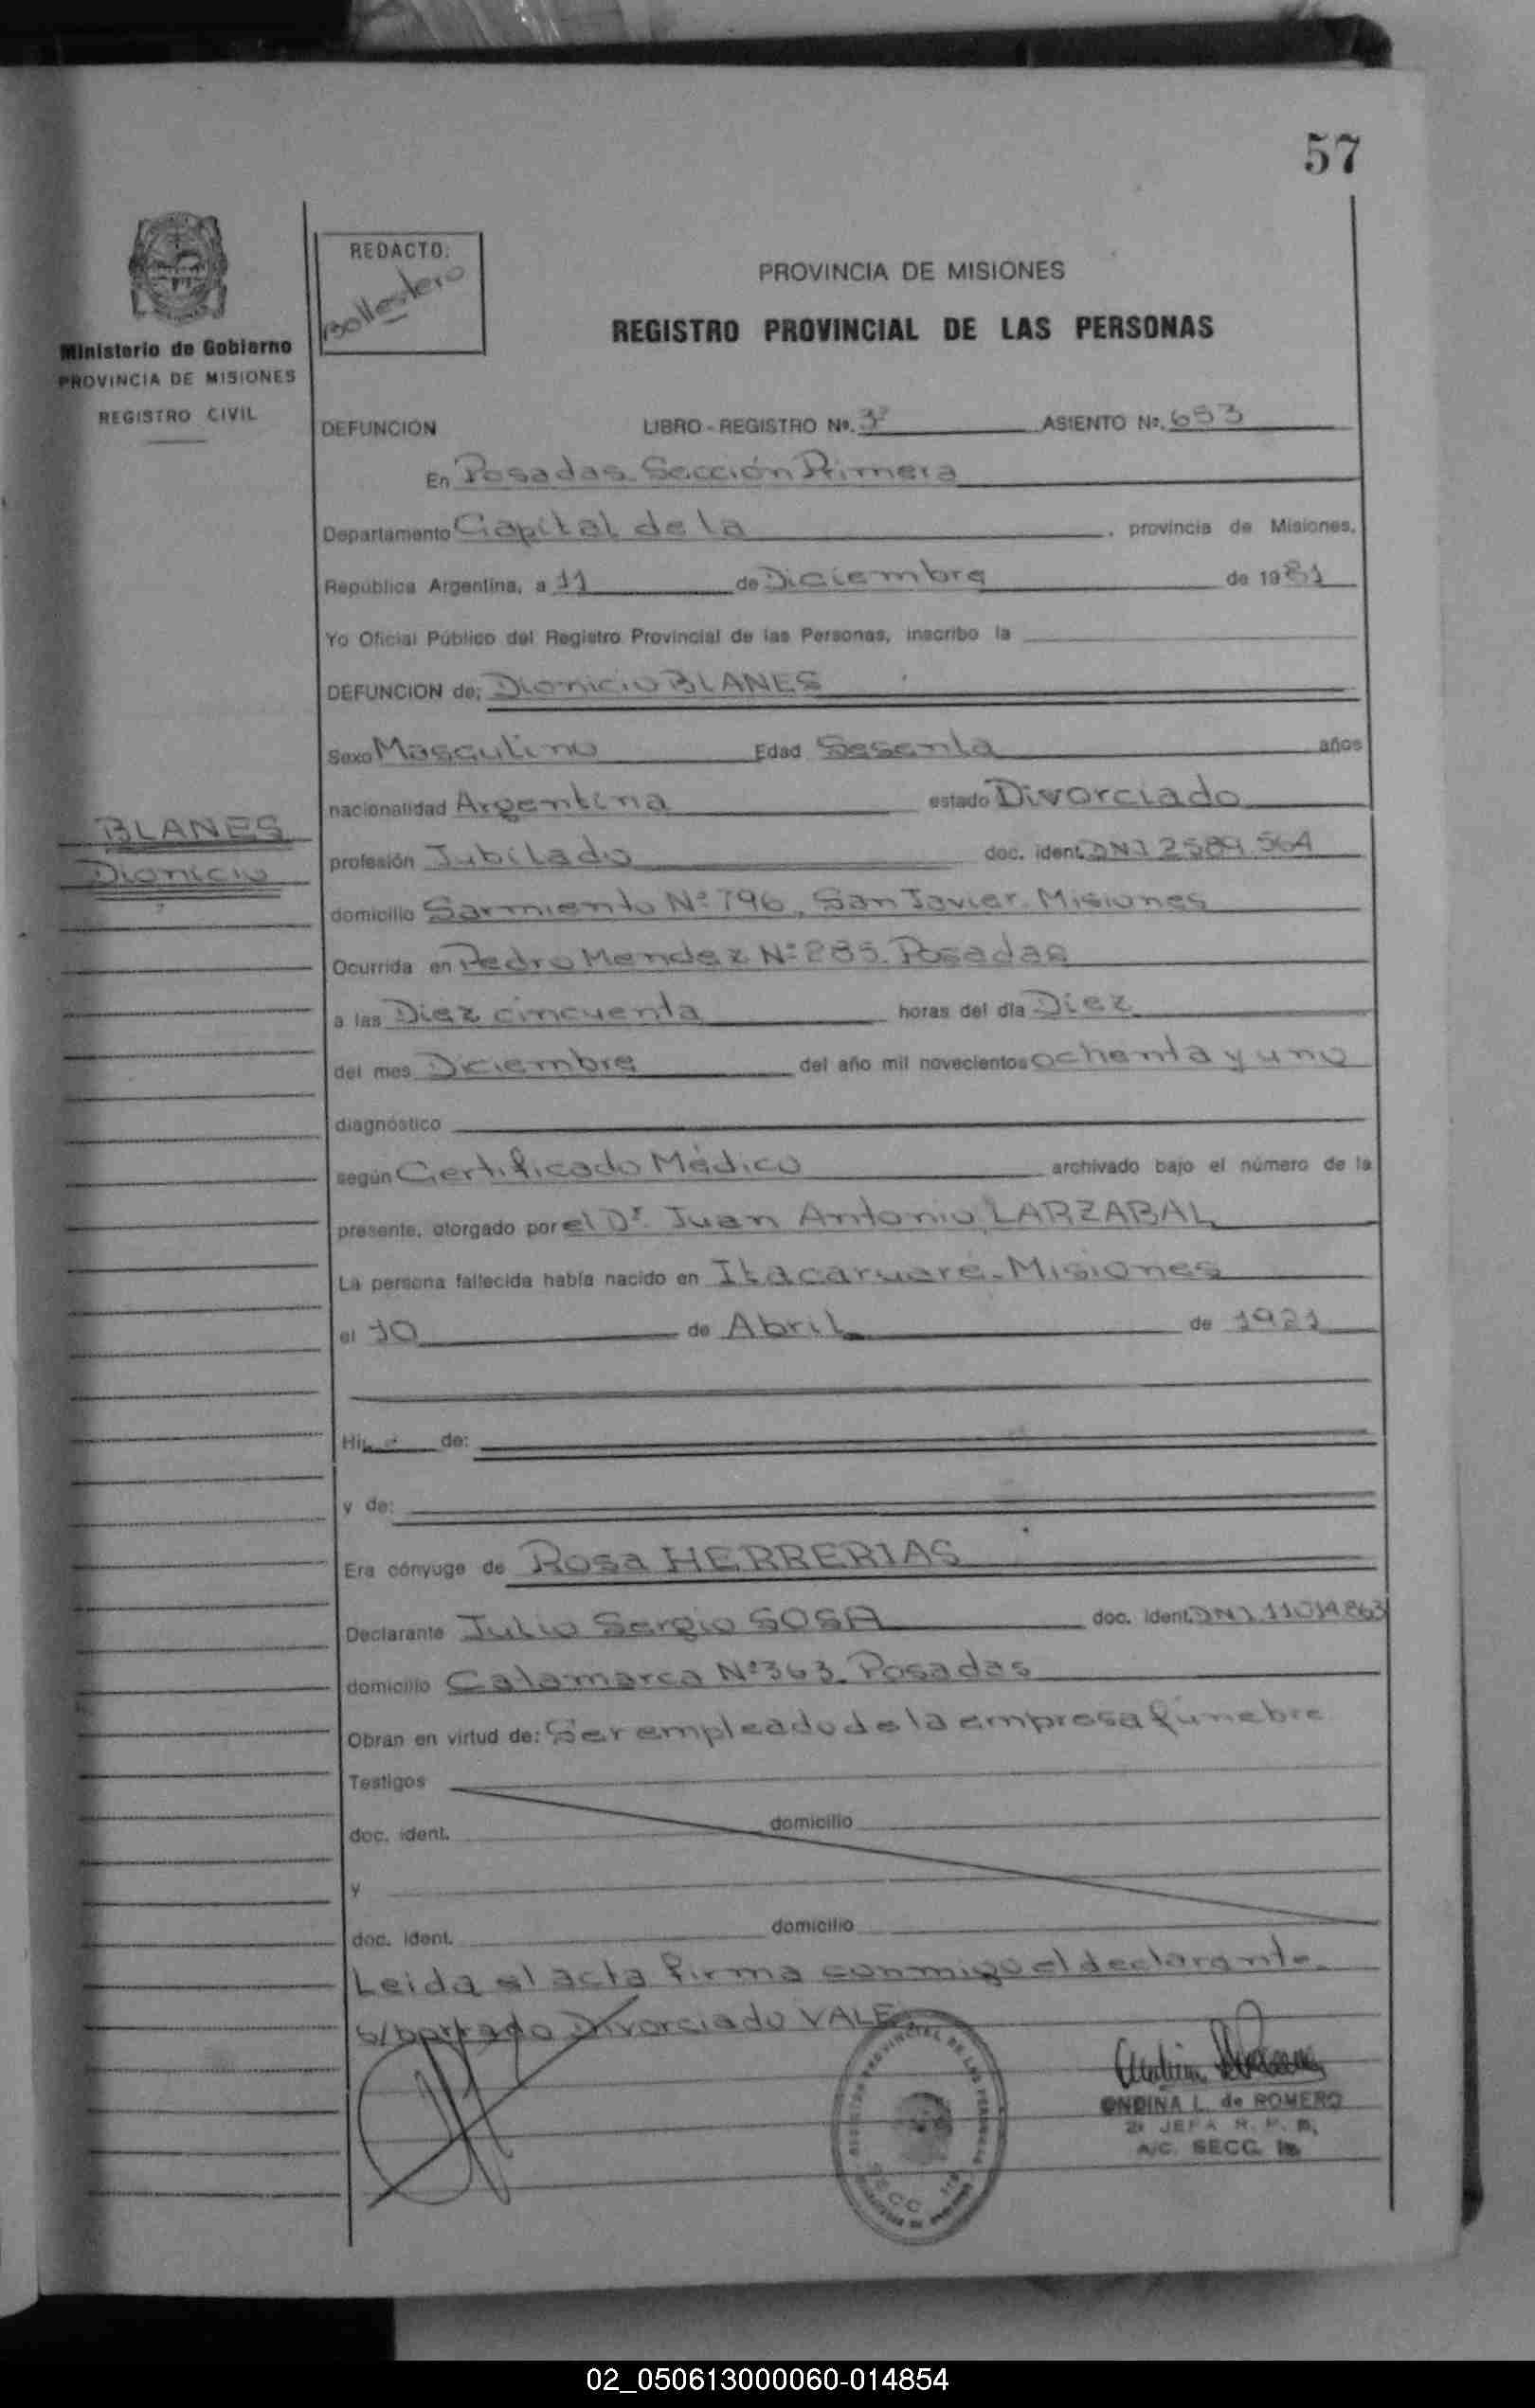 57
REDACTO:
Ballestero
Ministerio de Gobierno
PROVINCIA DE MISIONES
REGISTRO CIVIL
PROVINCIA DE MISIONES
REGISTRO PROVINCIAL DE LAS PERSONAS
DEFUNCION LIBRO - REGISTRO Nº. 3º ASIENTO Nº. 653
En Posadas Sección Primera
Departamento Capital de la , provincia de Misiones,
República Argentina, a 11 de Diciembre de 1981
Yo Oficial Público del Registro Provincial de las Personas, inscribo la
DEFUNCION de: Dionicio BLANES
Sexo Masculino Edad Sesenta años
nacionalidad Argentina estado Divorciado
BLANES
Dionicio
profesión Jubilado doc. ident. DNI 2589.564
domicilio Sarmiento Nº 796, San Javier. Misiones
Ocurrida en Pedro Mendez Nº 285. Posadas
a las Diez cincuenta horas del día Diez
del mes Diciembre del año mil novecientos ochenta y uno
diagnóstico
según Certificado Médico archivado bajo el número de la
presente, otorgado por el Dr. Juan Antonio LARZABAL
La persona fallecida había nacido en Itacaruaré. Misiones
el 10 de Abril de 1921
Hij de:
y de:
Era cónyuge de Rosa HERRERIAS
Declarante Julio Sergio SOSA doc. ident. DNI 11014863
domicilio Catamarca Nº 363. Posadas
Obran en virtud de: Ser empleado de la empresa fúnebre
Testigos
doc. ident. domicilio
y
doc. ident. domicilio
Leida el acta firma conmigo el declarante.
s/borrado Divorciado VALE
ONDINA L. de ROMERO
2ª JEFA R. P. P.
A/C. SECC. 1ª
02_050613000060-014854